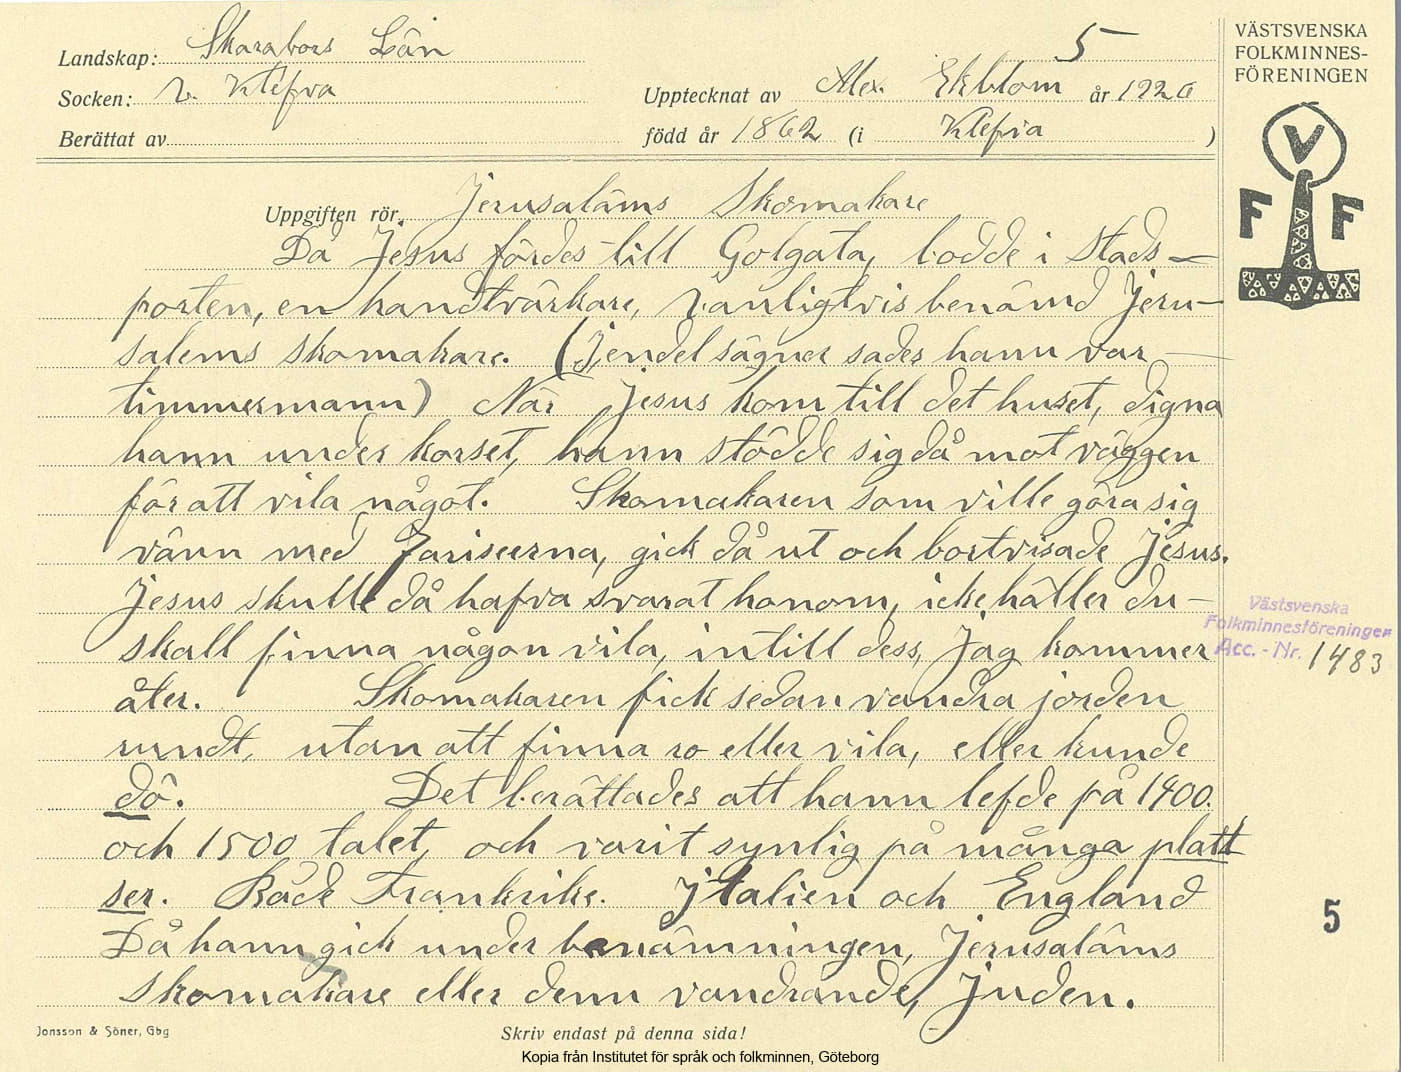 Landskap: Skarabors Län
Socken: V. Klefva
Berättat av
5
Upptecknat av Alex. Ekblom år 1926
född år 1862 (i Klefva )
VÄSTSVENSKA
FOLKMINNES-
FÖRENINGEN
V
F F
Uppgiften rör Jerusaläms Skomakare
Då Jesus fördes till Golgata, bodde i Stads-
porten, en handtvärkare, vanligtvis benämd Jeru-
salems skomakare. (J, endel sägner sades hann var
timmermann) När Jesus kom till det huset, digna
hann under korset, hann stödde sig då mot väggen
för att vila något. Skomakaren som ville göra sig
vänn med Fariseerna, gick då ut och bortvisade Jesus.
Jesus skulle då hafva svarat honom, icke häller du-
skall finna någon vila, intill dess, Jag kommer
åter. Skomakaren fick sedan vandra jorden
rundt, utan att finna ro eller vila, eller kunde
dö. Det berättades att hann lefde på 1400.
och 1500 talet, och varit synlig på många platt
ser. Både Frankrike. Jtalien och England
Då hann gick under benämningen, Jerusaläms
skomakare eller denn vandrande, Juden.
Västsvenska
Folkminnesföreningen
Acc. - Nr. 1483
5
Jonsson & Söner, Gbg
Skriv endast på denna sida!
Kopia från Institutet för språk och folkminnen, Göteborg